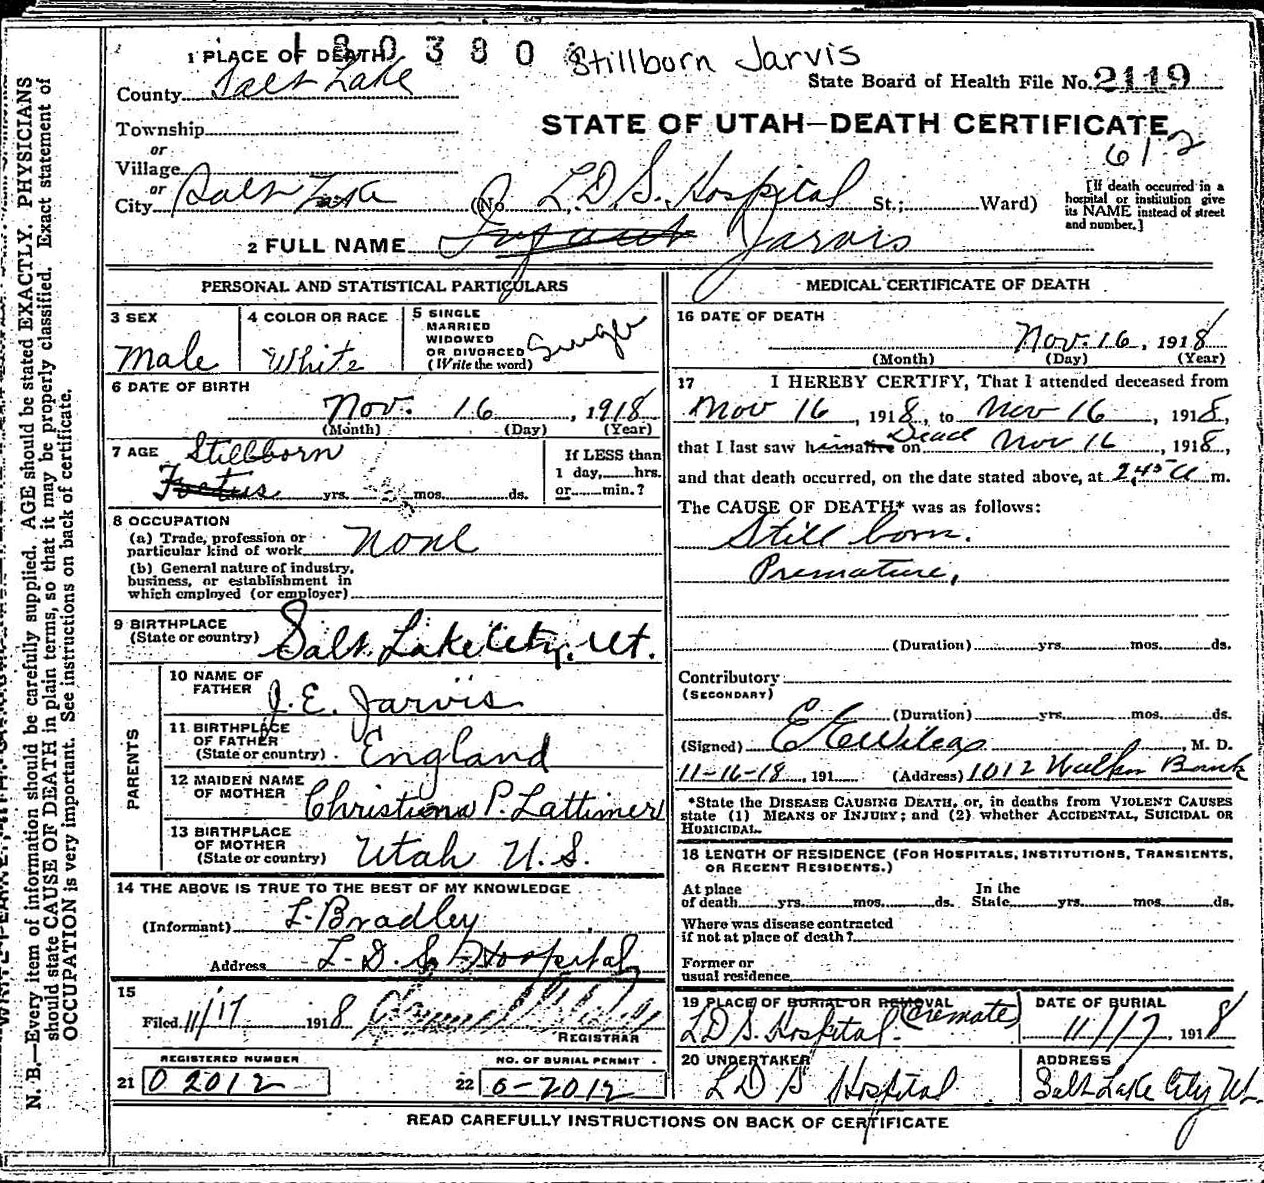 180380 Stillborn Jarvis
1 PLACE OF DEATH
State Board of Health File No. 2119
County Salt Lake
STATE OF UTAH—DEATH CERTIFICATE
Township
61-2
or
Village
or
City Salt Lake (No. L.D.S. Hospital St.; Ward)
[If death occurred in a hospital or institution give its NAME instead of street and number.]
2 FULL NAME Infant Jarvis
PERSONAL AND STATISTICAL PARTICULARS
3 SEX Male
4 COLOR OR RACE White
5 SINGLE MARRIED WIDOWED OR DIVORCED (Write the word) Single
6 DATE OF BIRTH
Nov. 16, 1918
(Month) (Day) (Year)
7 AGE Stillborn
Foetus yrs. mos. ds.
If LESS than 1 day, hrs. or min.?
8 OCCUPATION
(a) Trade, profession or particular kind of work None
(b) General nature of industry, business, or establishment in which employed (or employer)
9 BIRTHPLACE
(State or country) Salt Lake City, Ut.
PARENTS
10 NAME OF FATHER J. E. Jarvis
11 BIRTHPLACE OF FATHER (State or country) England
12 MAIDEN NAME OF MOTHER Christiena P. Lattimer
13 BIRTHPLACE OF MOTHER (State or country) Utah U. S.
14 THE ABOVE IS TRUE TO THE BEST OF MY KNOWLEDGE
(Informant) L. Bradley
Address L. D. S. Hospital
15
Filed 11/17 1918
REGISTRAR
REGISTERED NUMBER
21 02012
NO. OF BURIAL PERMIT
22 6-2012
MEDICAL CERTIFICATE OF DEATH
16 DATE OF DEATH
Nov. 16, 1918
(Month) (Day) (Year)
17 I HEREBY CERTIFY, That I attended deceased from
Nov 16, 1918, to Nov 16, 1918,
that I last saw him alive on Dead Nov 16, 1918,
and that death occurred, on the date stated above, at 2:45 a m.
The CAUSE OF DEATH* was as follows:
Still born.
Premature,
(Duration) yrs. mos. ds.
Contributory
(SECONDARY)
(Duration) yrs. mos. ds.
(Signed) , M. D.
11-16-18, 191 (Address) 1012 Walker Bank
*State the DISEASE CAUSING DEATH, or, in deaths from VIOLENT CAUSES state (1) MEANS OF INJURY; and (2) whether ACCIDENTAL, SUICIDAL OR HOMICIDAL.
18 LENGTH OF RESIDENCE (FOR HOSPITALS, INSTITUTIONS, TRANSIENTS, OR RECENT RESIDENTS.)
At place of death yrs. mos. ds. In the State yrs. mos. ds.
Where was disease contracted if not at place of death?
Former or usual residence
19 PLACE OF BURIAL OR REMOVAL (Cremate)
L D S. Hospital.
DATE OF BURIAL
11/17, 1918
20 UNDERTAKER
L D S Hospital
ADDRESS
Salt Lake City Ut.
READ CAREFULLY INSTRUCTIONS ON BACK OF CERTIFICATE
N. B.—Every item of information should be carefully supplied. AGE should be stated EXACTLY. PHYSICIANS
should state CAUSE OF DEATH in plain terms, so that it may be properly classified. Exact statement of
OCCUPATION is very important. See instructions on back of certificate.